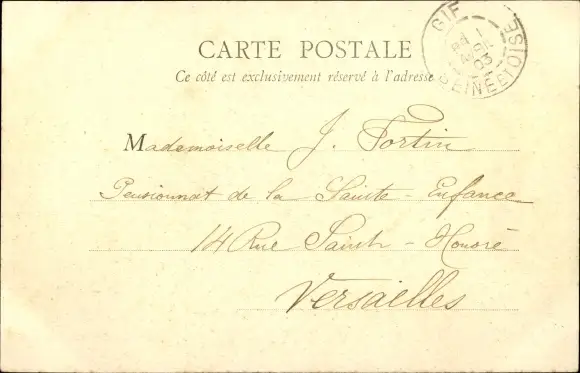 CARTE POSTALE
Ce côté est exclusivement réservé à l'adresse
GIF
1
AVRIL
03
SEINE ET OISE
Mademoiselle J. Fortin
Pensionnat de la Sainte-Enfance
14 Rue Saint-Honoré
Versailles